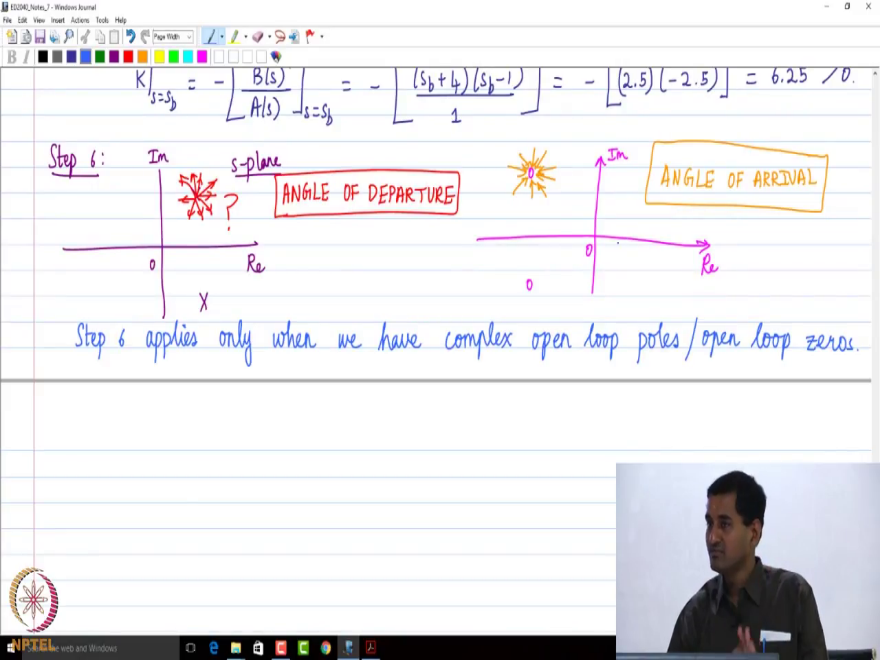 ED2040_Notes_7 - Windows Journal
File Edit View Insert Actions Tools Help
Page Width
B I
K|s=sb = -[B(s)/A(s)]s=sb = -[(sb+4)(sb-1)/1] = -[(2.5)(-2.5)] = 6.25 > 0.
Step 6:
Im
s-plane
?
ANGLE OF DEPARTURE
0
Re
X
Im
ANGLE OF ARRIVAL
0
Re
Step 6 applies only when we have complex open loop poles/open loop zeros.
NPTEL
the web and Windows